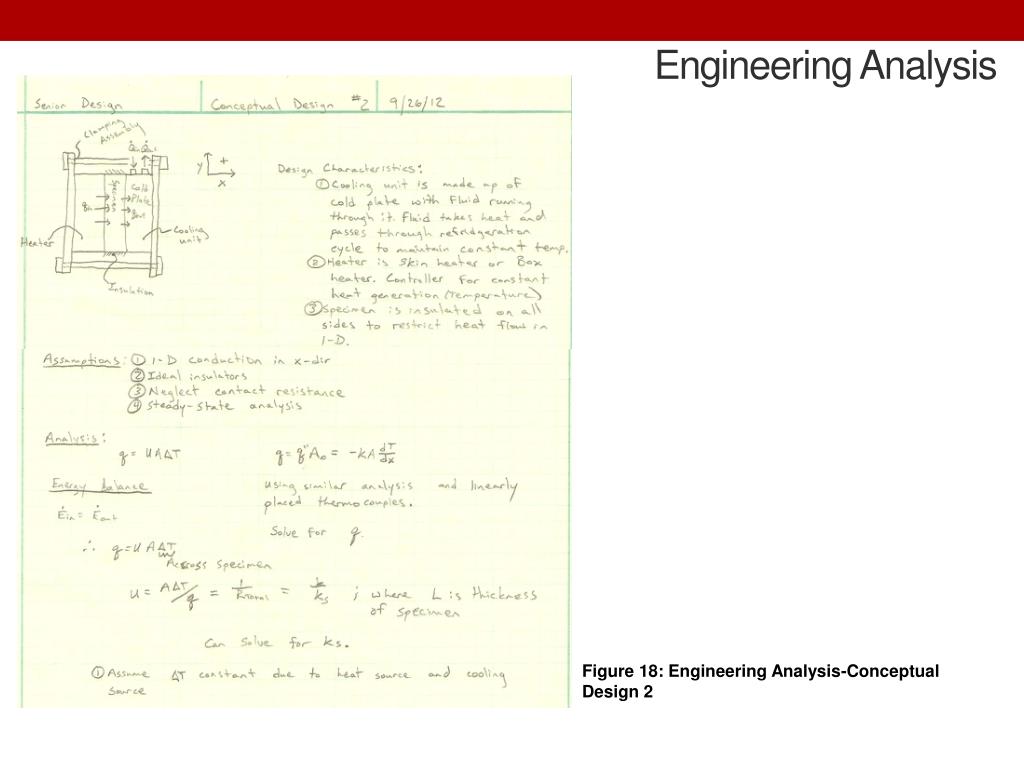 Engineering Analysis
Senior Design Conceptual Design #2 9/26/12
Clamping
Assembly
y + x
Specimen
Cold
Plate
Heater
Cooling
unit
Insulation
Design Characteristics:
① Cooling unit is made up of
cold plate with fluid running
through it. Fluid takes heat and
passes through refridgeration
cycle to maintain constant temp.
② Heater is skin heater or Box
heater. Controller for constant
heat generation (Temperature)
③ Specimen is insulated on all
sides to restrict heat flow in
1-D.
Assumptions: ① 1-D conduction in x-dir
② Ideal insulators
③ Neglect contact resistance
④ Steady-state analysis
Analysis:
q = UAΔT
q = q"A₀ = -kA dT/dx
Energy balance
Using similar analysis and linearly
placed thermocouples.
Ėin = Ėout
Solve for q.
∴ q = UAΔT
Across specimen
U = AΔT/q = 1/RTotal = L/ks ; where L is thickness
of specimen
Can solve for ks.
① Assume ΔT constant due to heat source and cooling
source
Figure 18: Engineering Analysis-Conceptual
Design 2